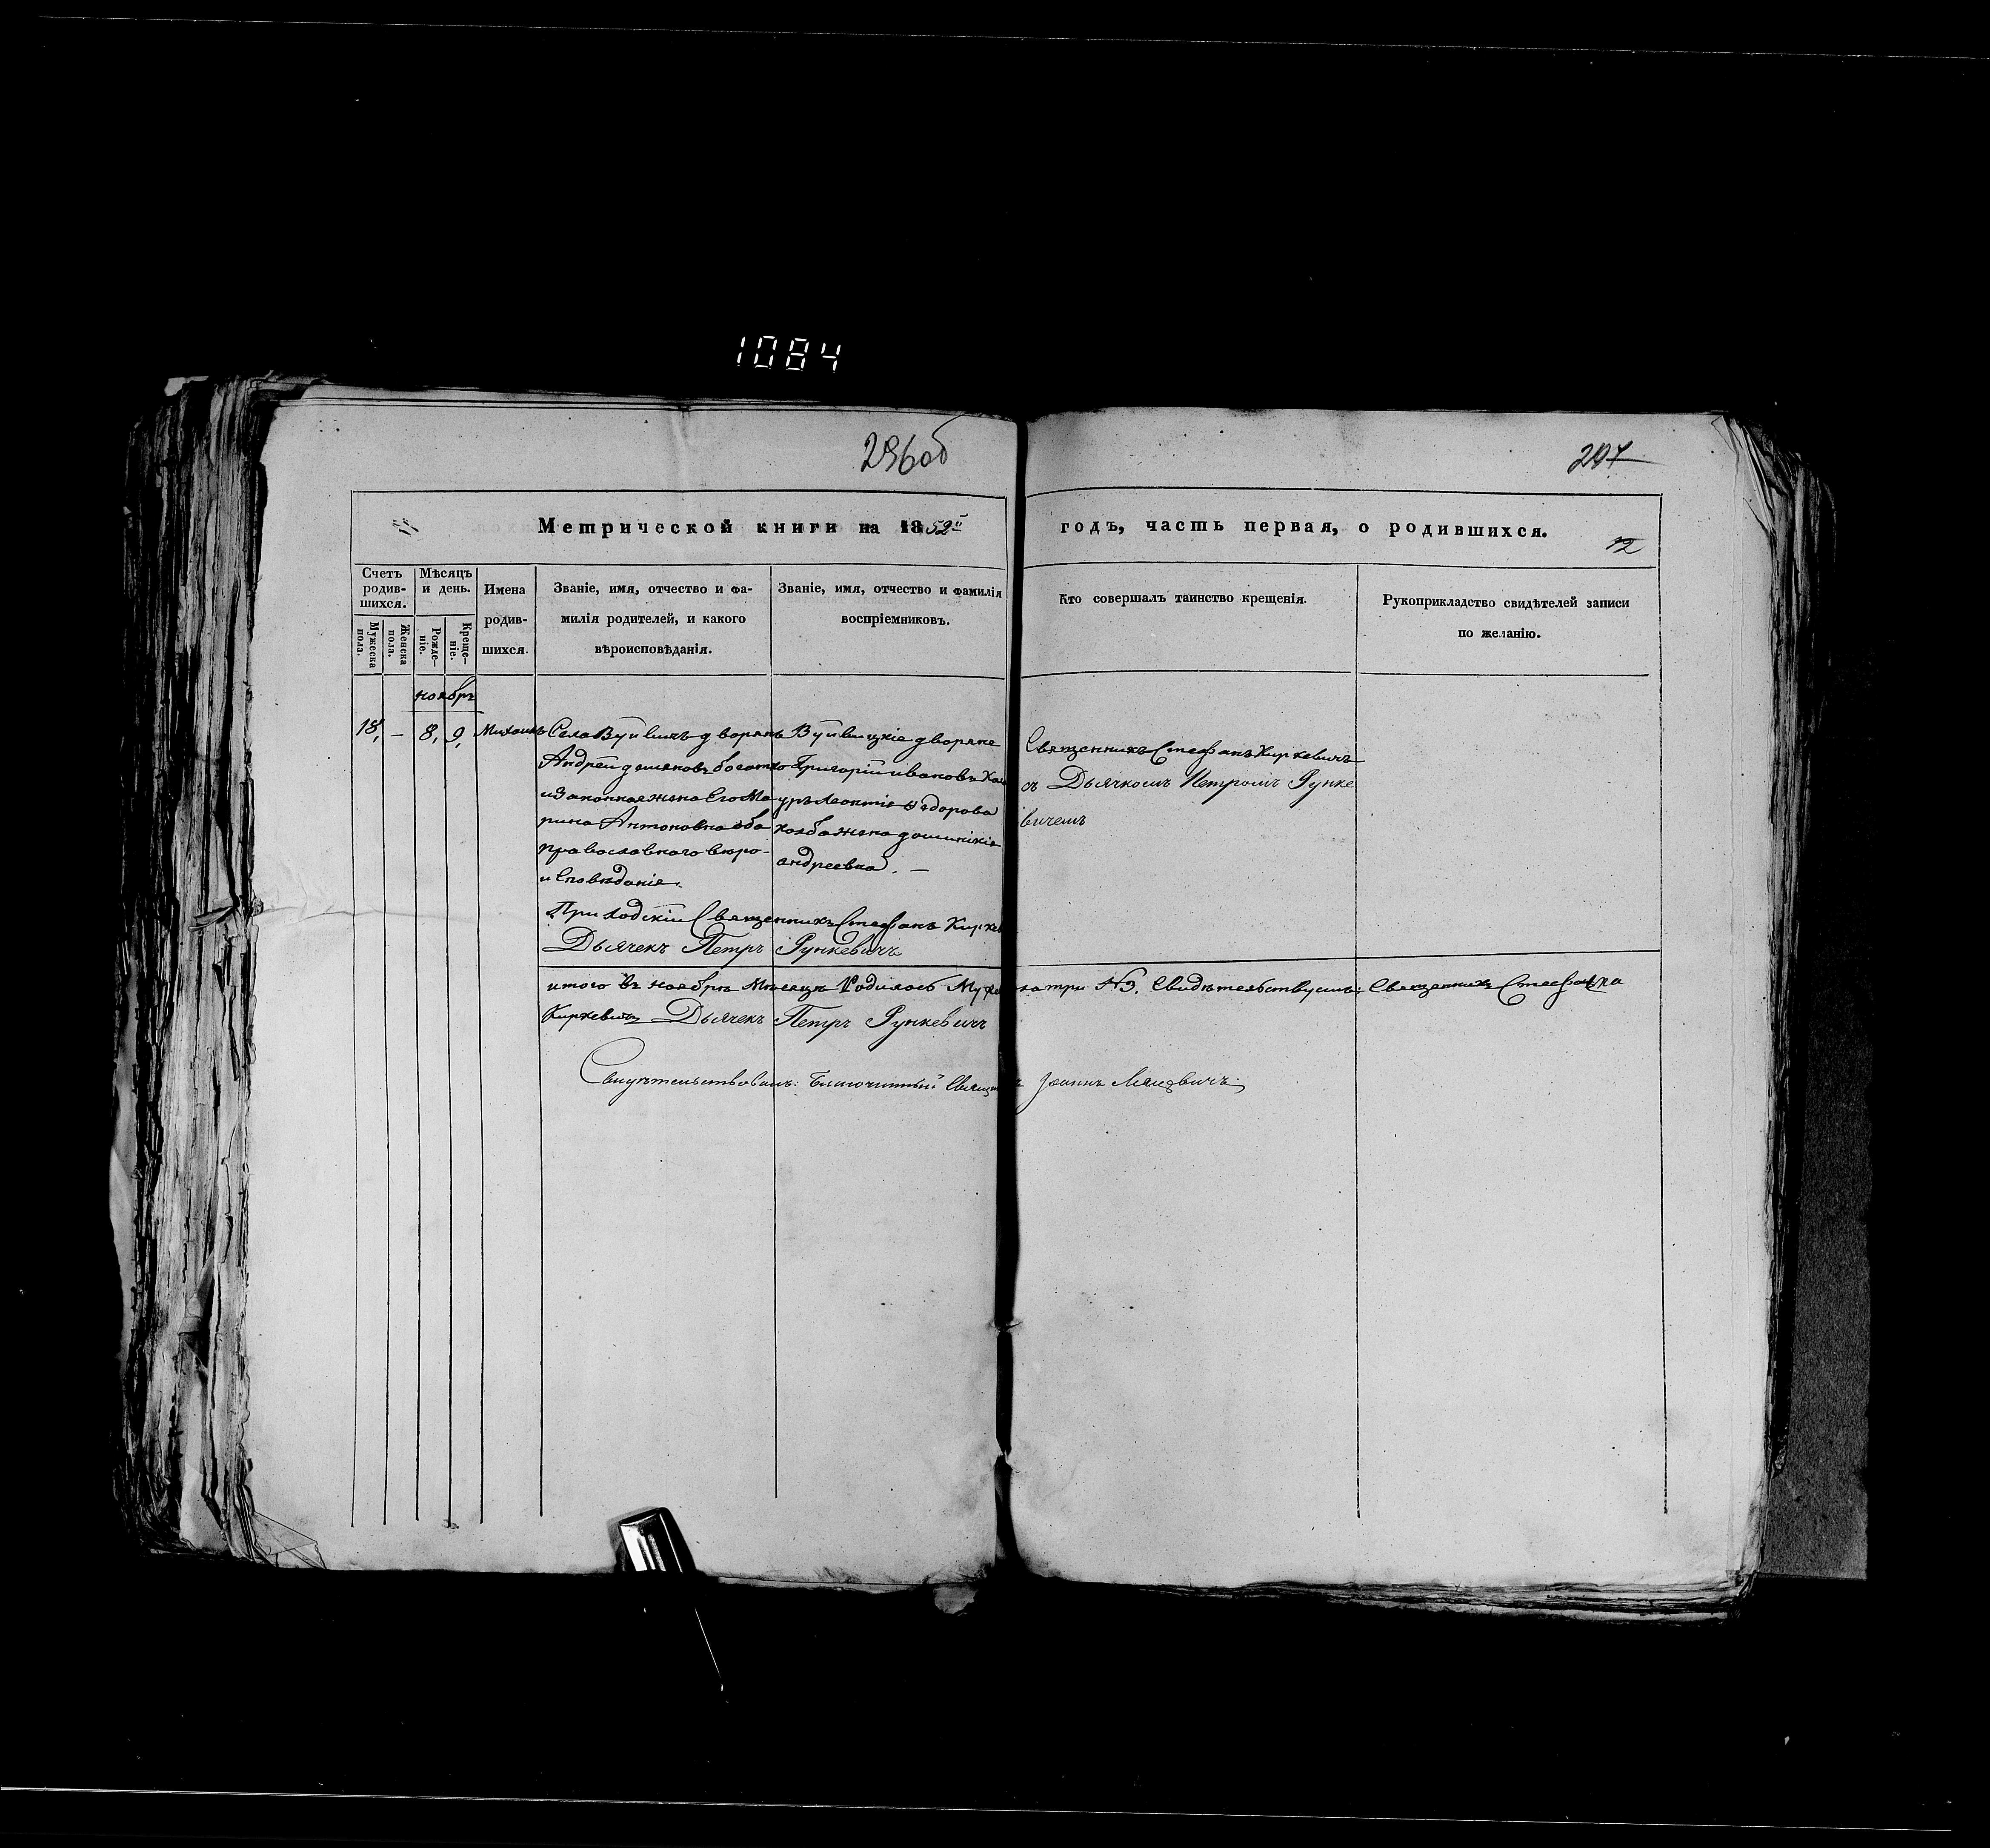 1084
296об
297
Метрической книги на 1852й годъ, часть первая, о родившихся.
12
Счетъ родив-шихся.
Мужеска пола.
Женска пола.
Мѣсяцъ и день.
Рожде-ніе.
Креще-ніе.
Имена
родив-
шихся.
Званіе, имя, отчество и фа-
милія родителей, и какого
вѣроисповѣданія.
Званіе, имя, отчество и фамилія
воспріемниковъ.
Кто совершалъ таинство крещенія.
Рукоприкладство свидѣтелей записи
по желанію.
ноябрь
18, — 8, 9, Михаилъ
Села Вуйвичъ дворянъ
Андрей
и Законная жена Его Ма
рина Антоновна оба
православнаго вѣро-
исповѣданія.
Вуйвицкіе дворяне
Григорій ивановъ
жена
андреевна. —
Священникъ Стефанъ Киркевичъ
съ Дьячкомъ Петромъ Рунке
вичемъ
Приходскій Священникъ Стефанъ Кирке
Дьячекъ Петръ Рункевичъ
итого въ ноябрѣ Мѣсяцѣ Родилось Мужеска три №3. Свидѣтельствуемъ: Священникъ Стефанъ
Киркевичъ Дьячекъ Петръ Рункевичъ
Свидѣтельствовалъ: Благочинный Священ Іоаннъ